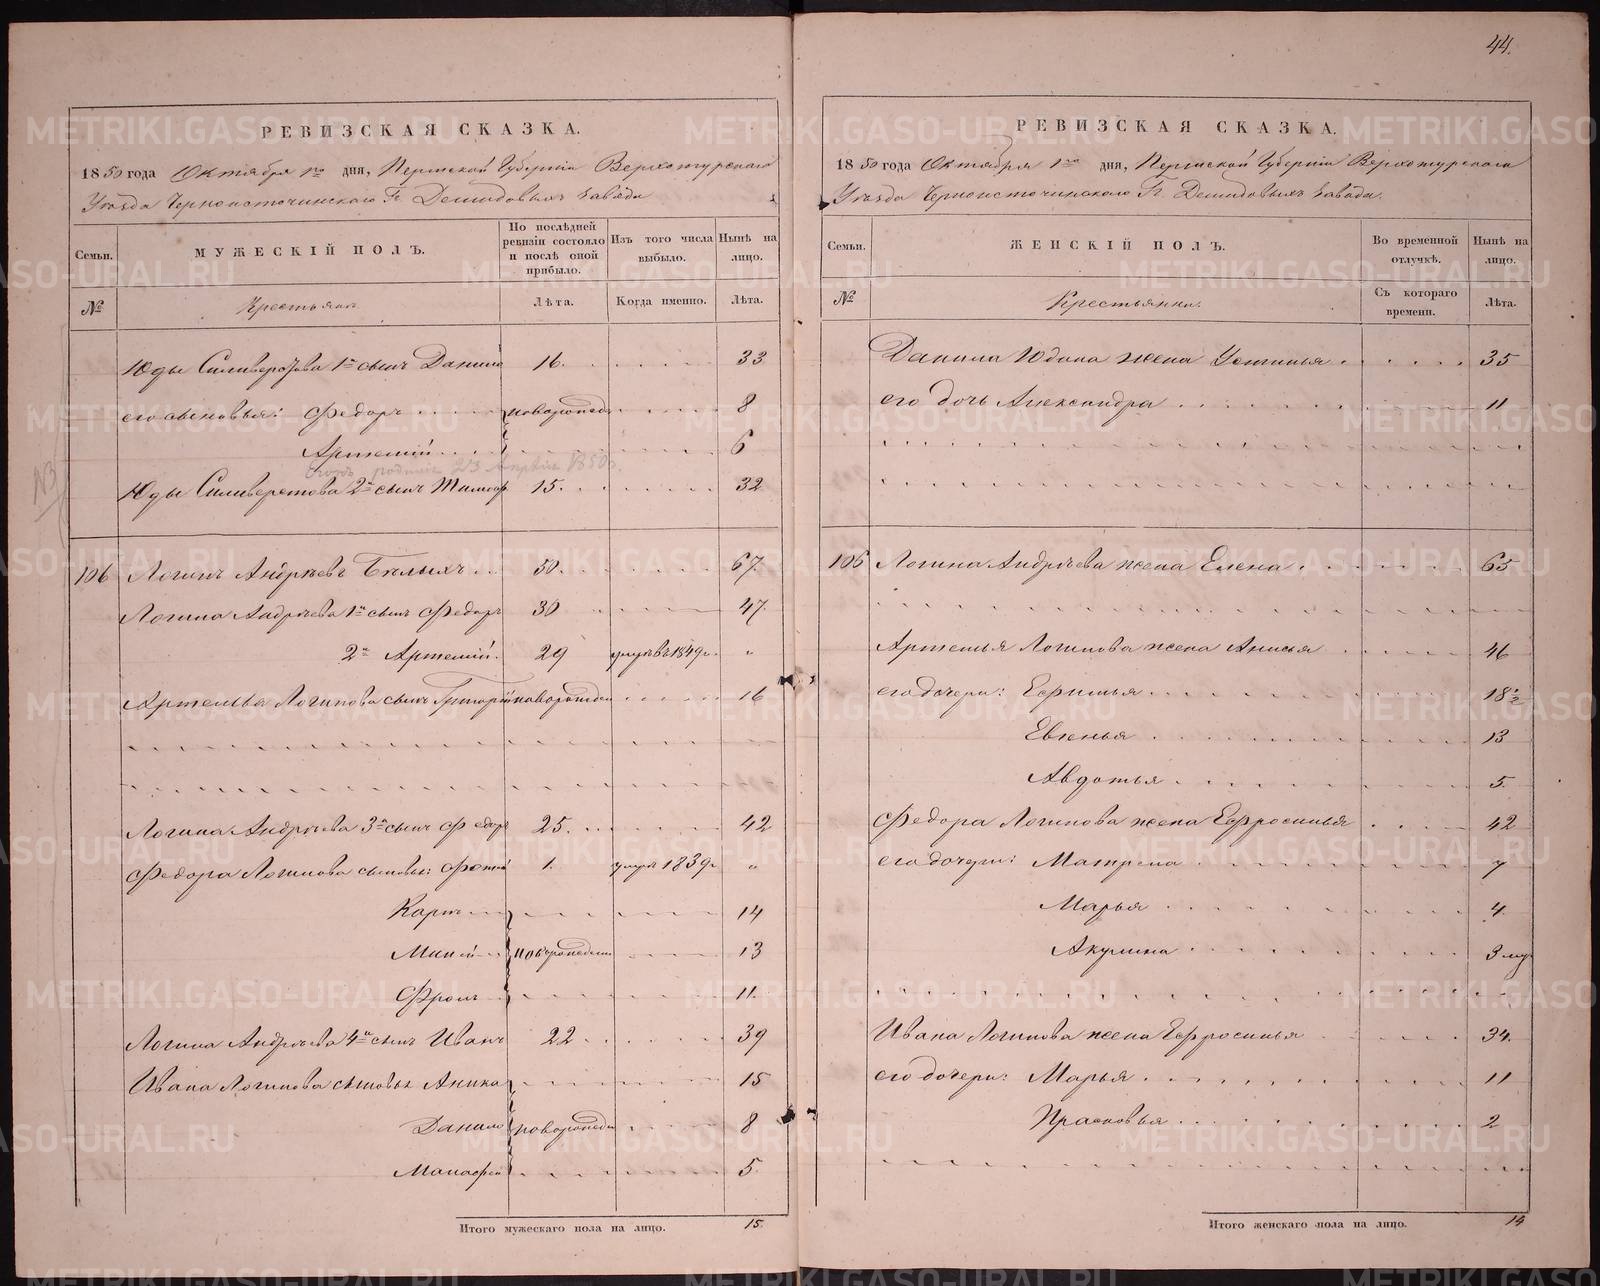 44.
РЕВИЗСКАЯ СКАЗКА.
1850 года Октября 1го дня, Пермской Губерніи Верхотурскаго
Уѣзда Черноисточинскаго Гг. Демидовыхъ завода
Семьи. МУЖЕСКІЙ ПОЛЪ. По послѣдней ревизіи состояло и послѣ оной прибыло. Изъ того числа выбыло. Нынѣ на лицо.
№ Крестьяне. Лѣта. Когда именно. Лѣта.
Юды Силиверстова 1й сынъ Данило 16. 33
его сыновья: Федоръ новорожден 8
Артемій 6
родился 23 Апрѣля 1850г.
Юды Силиверстова 2й сынъ Тимоф 15. 32
106 Логинъ Андрѣевъ Бѣлыхъ 50. 67.
Логина Андрѣева 1й сынъ Федоръ 30 47.
2й Артемій. 29 умръ въ 1849г. "
Артемья Логинова сынъ Григорій новорожден 16
Логина Андрѣева 3й сынъ Федоръ 25. 42
Федора Логинова сыновья: 1. умръ 1839г "
Карпъ 14
новорожден 13
Фролъ 11.
Логина Андрѣева 4й сынъ Иванъ 22 39
Ивана Логинова сыновья Аника 15
Данило новорожден 8
Манафей 5.
Итого мужескаго пола на лицо. 15.
РЕВИЗСКАЯ СКАЗКА.
1850 года Октября 1го дня, Пермской Губерніи Верхотурскаго
Уѣзда Черноисточинскаго Гг. Демидовыхъ завода.
Семьи. ЖЕНСКІЙ ПОЛЪ. Во временной отлучкѣ. Нынѣ на лицо.
№ Крестьянки. Съ котораго времени. Лѣта.
Данила Юдина жена Устинья 35
его дочь Александра 11
106 Логина Андрѣева жена Елена 65
Артемья Логинова жена Анисья 46
его дочери: Ефимья 18½
Евгенья 13
Авдотья 5.
Федора Логинова жена Ефросинья 42
его дочери: Матрена 7
Марья 4.
Акулина 3 мѣ
Ивана Логинова жена Ефросинья 34.
его дочери: Марья 11
Прасковья 2
Итого женскаго пола на лицо. 14
METRIKI.GASO-URAL.RU